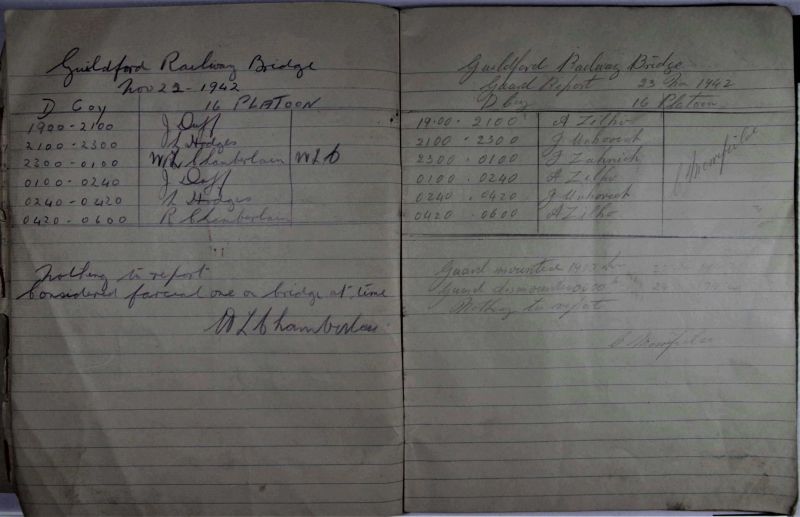 Guildford Railway Bridge
Nov 22 - 1942
D Coy 16 PLATOON
1900 - 2100 J Duff
2100 - 2300 Hodges
2300 - 0100 W L Chamberlain W L C
0100 - 0240 J Duff
0240 - 0420 Hodges
0420 - 0600 R Chamberlain
Nothing to report
Considered farcical one on bridge at time
W L Chamberlain
Guildford Railway Bridge
Guard Report 23 Nov 1942
D Coy 16 Platoon
1900 - 2100 A Zilho
2100 - 2300 J
2300 - 0100 J
0100 - 0240 A Zilho
0240 - 0420 J
0420 - 0600 A Zilho
Guard mounted
Guard dismounted
Nothing to report